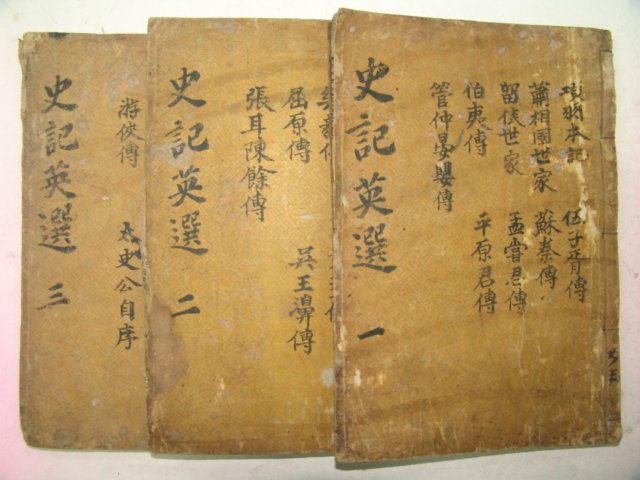 項羽本記
蕭相國世家
留侯世家
伯夷傳
管仲晏嬰傳
伍子胥傳
蘇秦傳
孟嘗君傳
平原君傳
史記英選 一
屈原傳
張耳陳餘傳
吳王濞傳
史記英選 二
游俠傳
太史公自序
史記英選 三